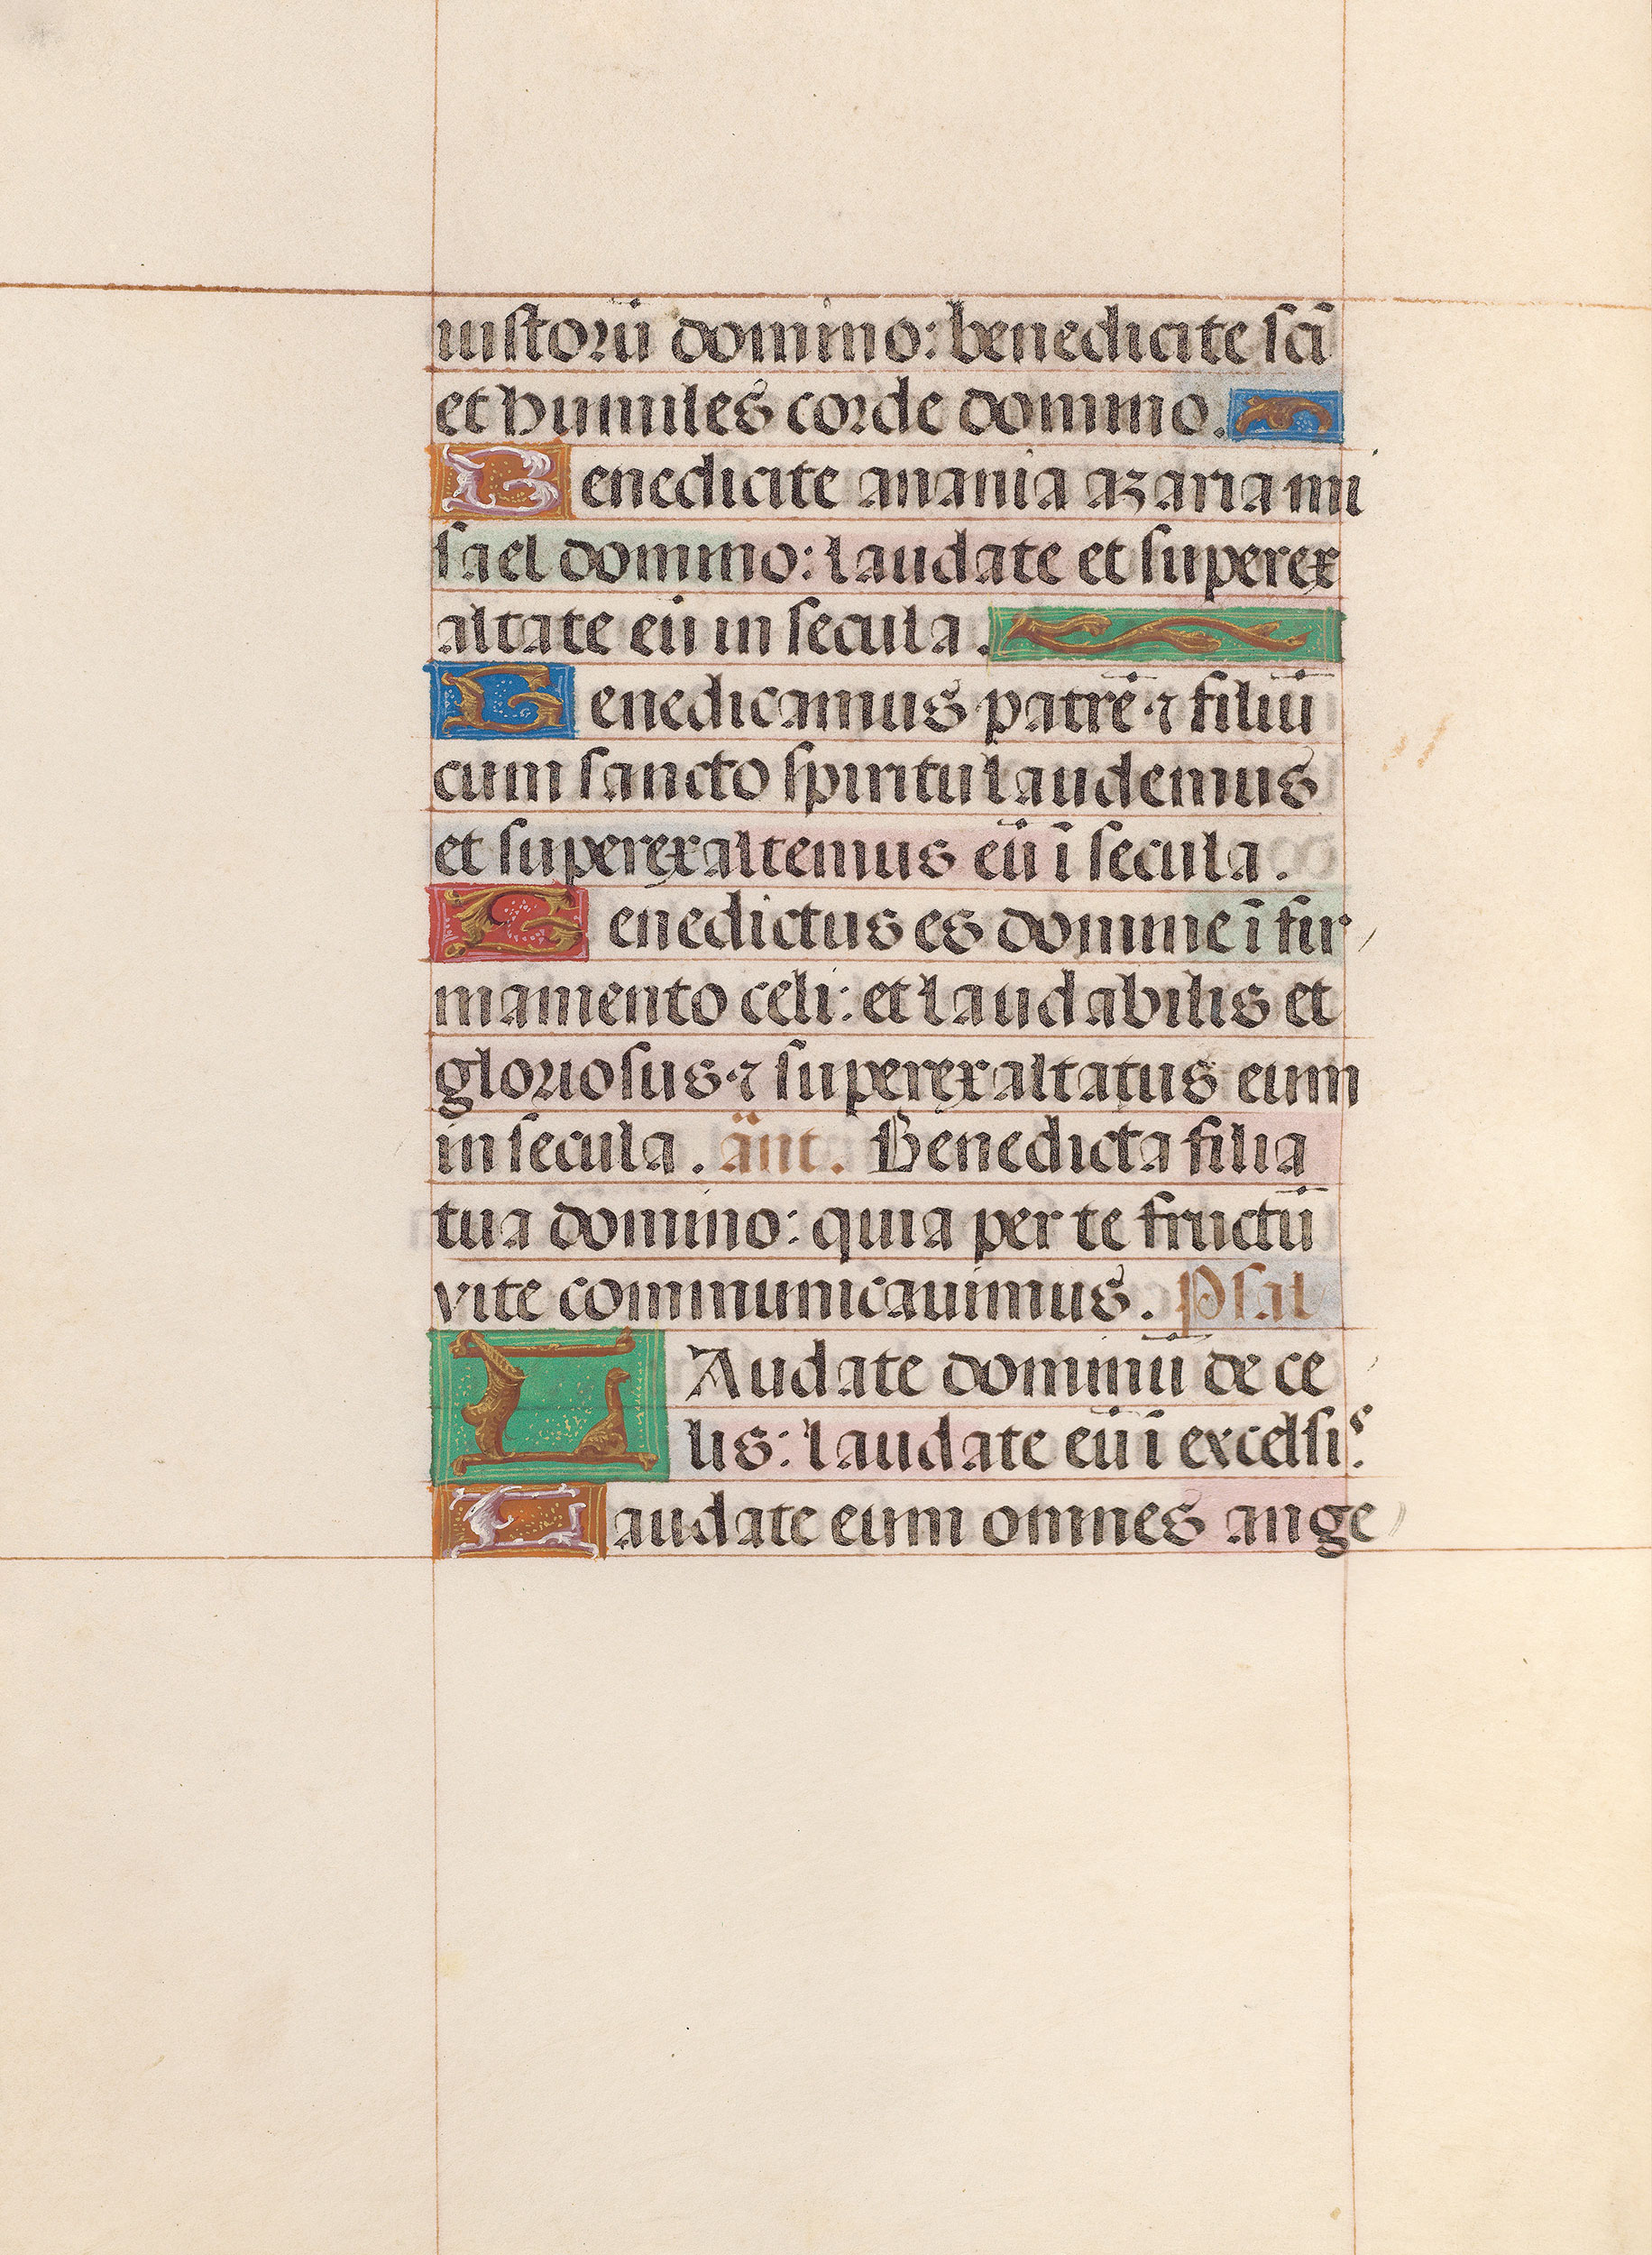 iustorū domino: benedicite sc̄i
et humiles corde domino.
Benedicite anania azaria mi
sael domino: laudate et superex
altate eū in secula.
Benedicamus patrē ⁊ filiū
cum sancto spiritu laudemus
et superexaltemus eū ī secula.
Benedictus es domine ī fir
mamento celi: et laudabilis et
gloriosus ⁊ superexaltatus eum
in secula. añt. Benedicta filia
tua domino: quia per te fructū
vite communicauimus. Psal
LAudate dominū de ce
lis: laudate eū ī excelsis.
Laudate eum omnes ange